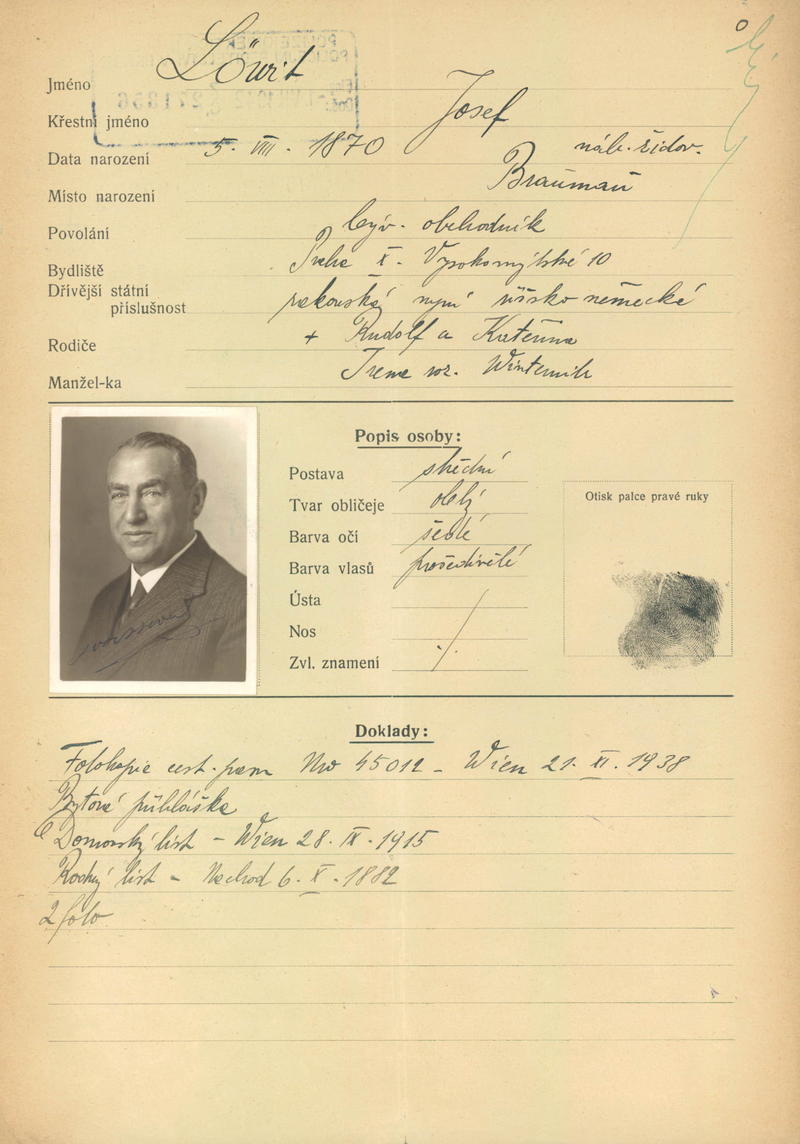 Jméno Löwit
Křestní jméno Josef
Data narození 5. VIII. 1870 náb. židov.
Místo narození Braunau
Povolání býv. obchodník
Bydliště Praha X. Vysokomýtské 10
Dřívější státní
příslušnost rakouská nyní říšsko německé
Rodiče + Rudolf a Kateřina
Manžel-ka Irene roz. Winternitz
Popis osoby:
Postava střední
Tvar obličeje oblý
Barva očí šedé
Barva vlasů prošedivělé
Ústa
Nos
Zvl. znamení
Otisk palce pravé ruky
Doklady:
Fotokopie cest. pasu No 45012 - Wien 21. XI. 1938
Bytová přihláška
Domovský list - Wien 28. IX. 1915
Rodný list - Nachod 6. X. 1882
2 foto